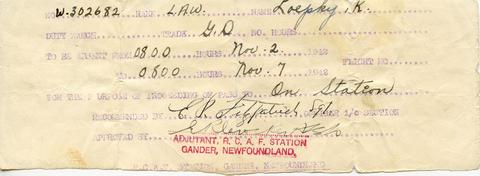 NO. W-302682 RANK L.A.W. NAME Loepky, K.
DUTY WATCH TRADE G.D. NO. HOURS
TO BE ABSENT FROM 0800 HOURS Nov. 2. 1942
TO 0800 HOURS Nov. 7 1942 FLIGHT NO
FOR THE PURPOSE OF PROCEEDING ON PASS TO On Station
RECOMMENDED BY C R Fitzpatrick Sgt OFFICER i/c SECTION
APPROVED BY
ADJUTANT, R. C. A. F. STATION
GANDER, NEWFOUNDLAND.
R.C.A.F. STATION, GANDER, NEWFOUNDLAND